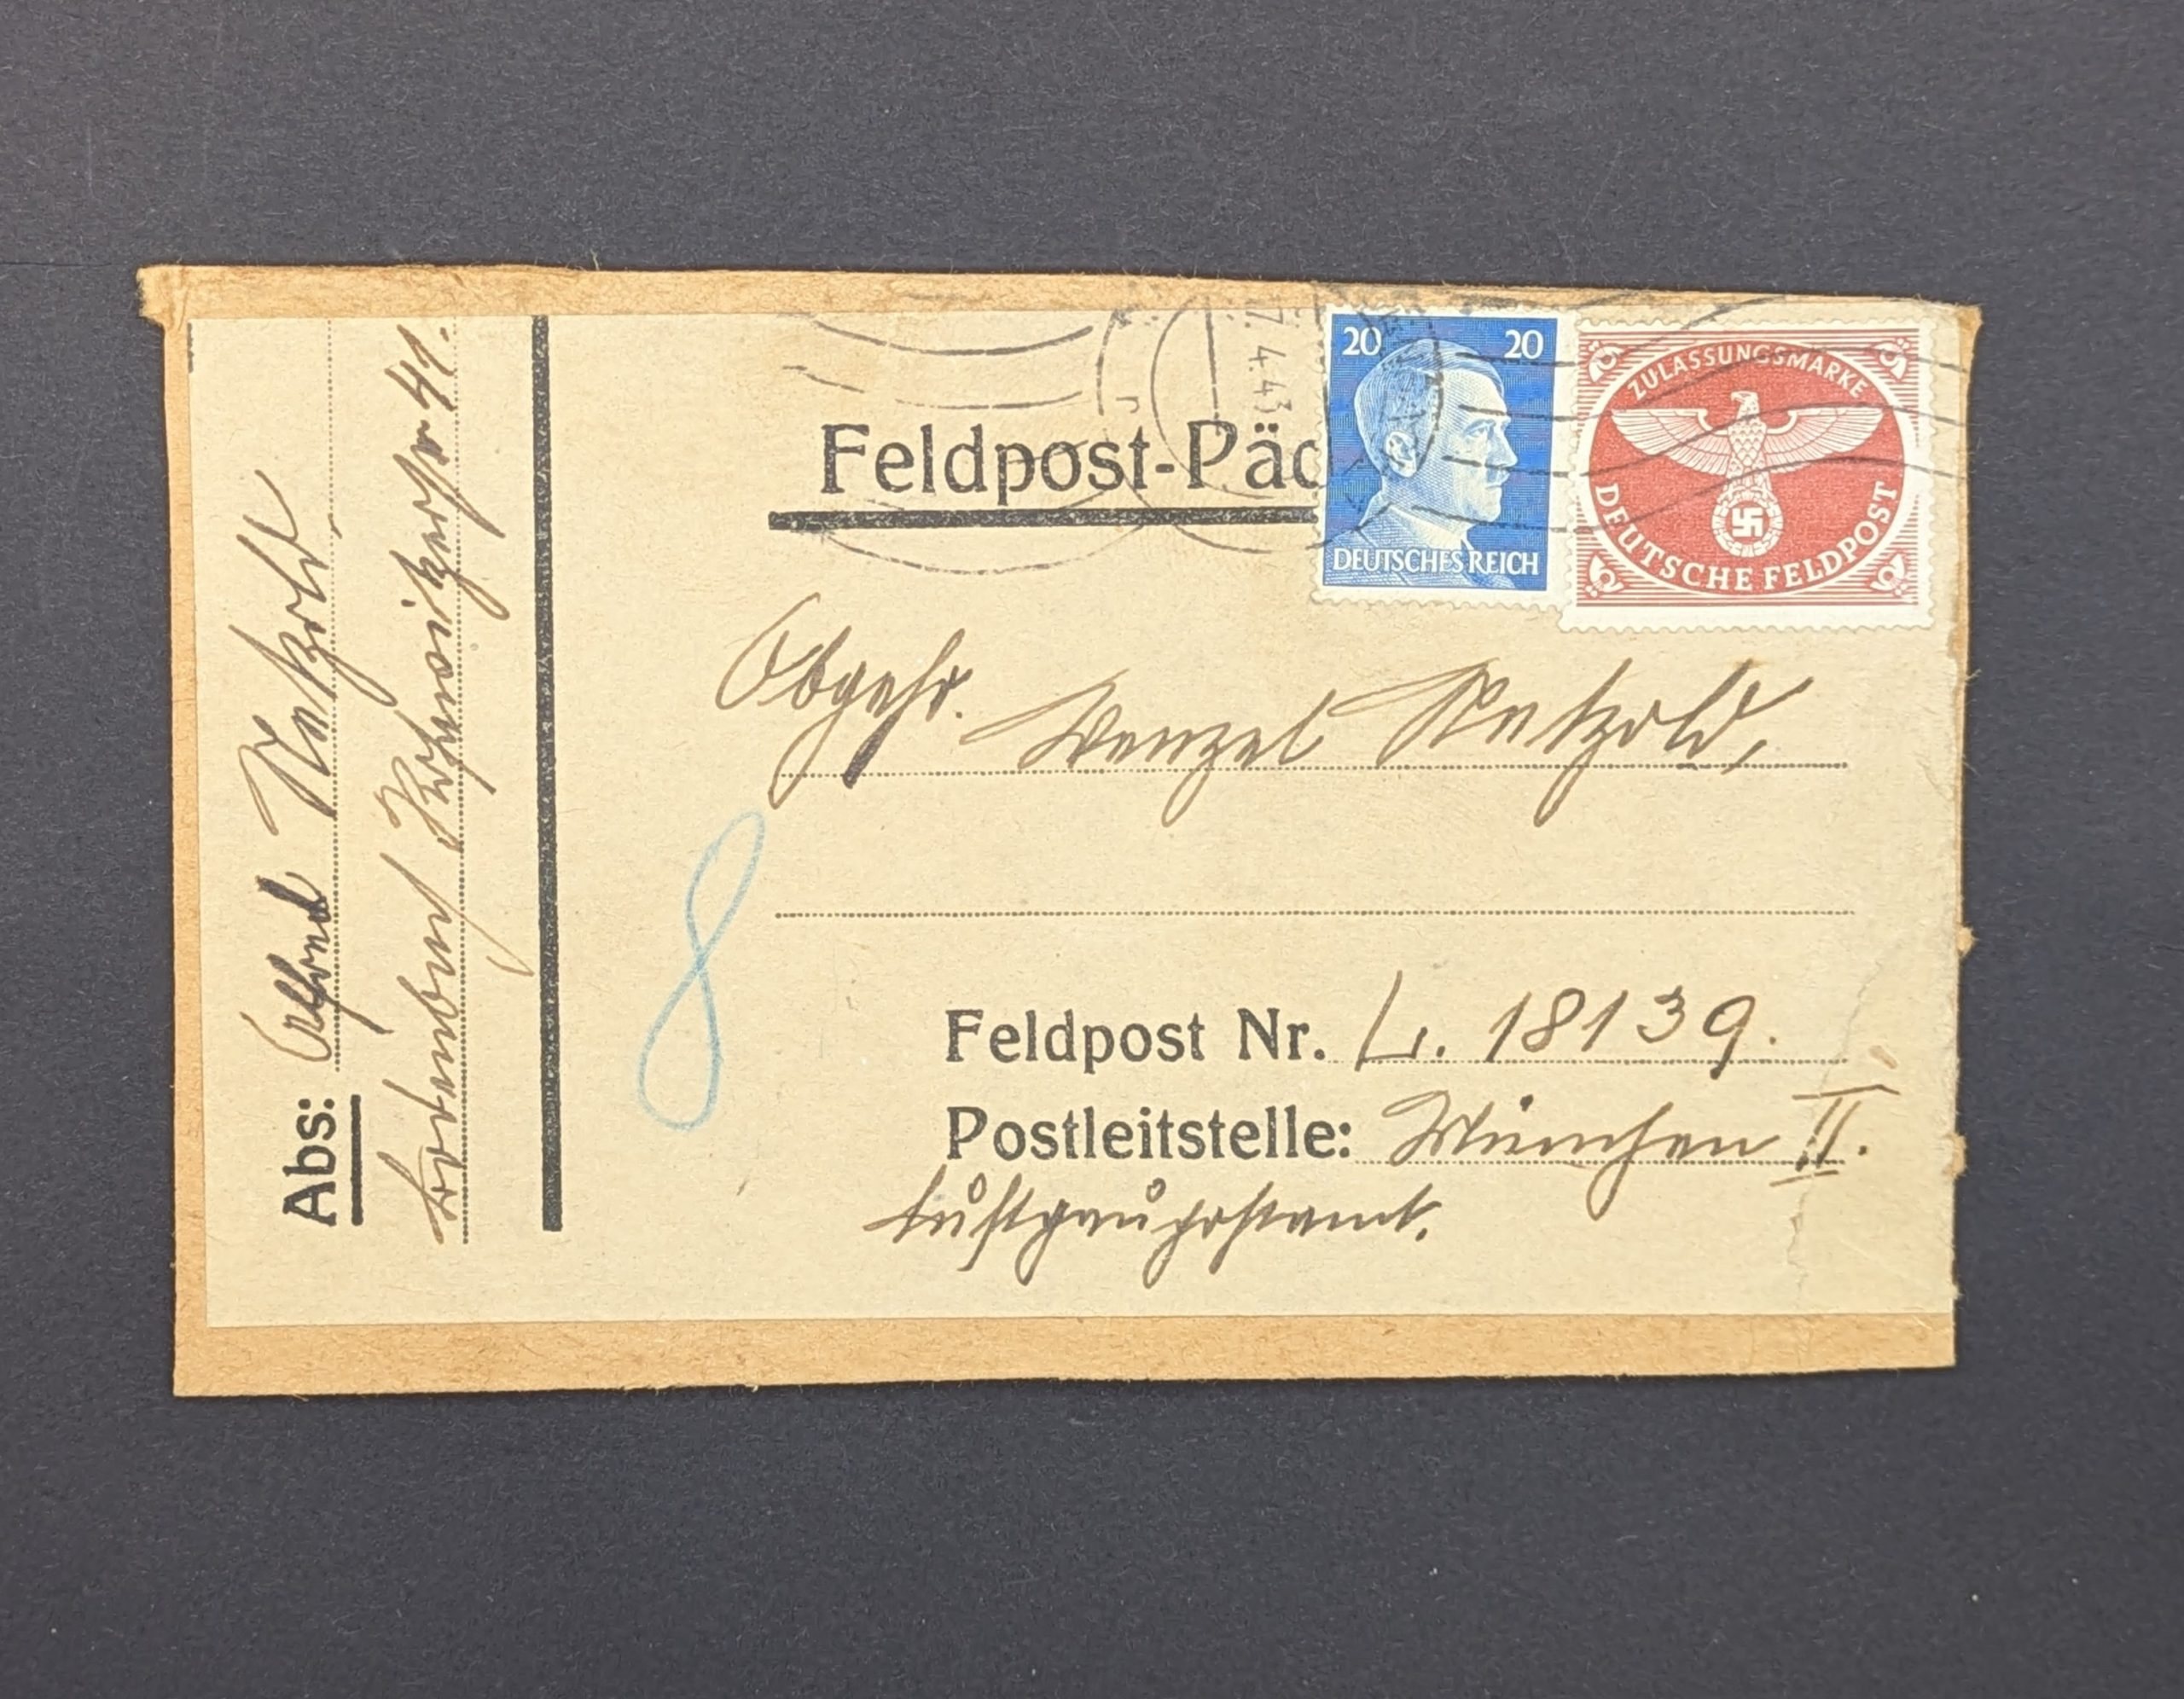 7. 4. 43
Feldpost-Päc
20 20
DEUTSCHES REICH
ZULASSUNGSMARKE
DEUTSCHE FELDPOST
Obgefr. Wenzel Petzold,
8
Feldpost Nr. L. 18139.
Postleitstelle: München II.
Luftgaupostamt.
Abs: Alfred Petzold,
41.